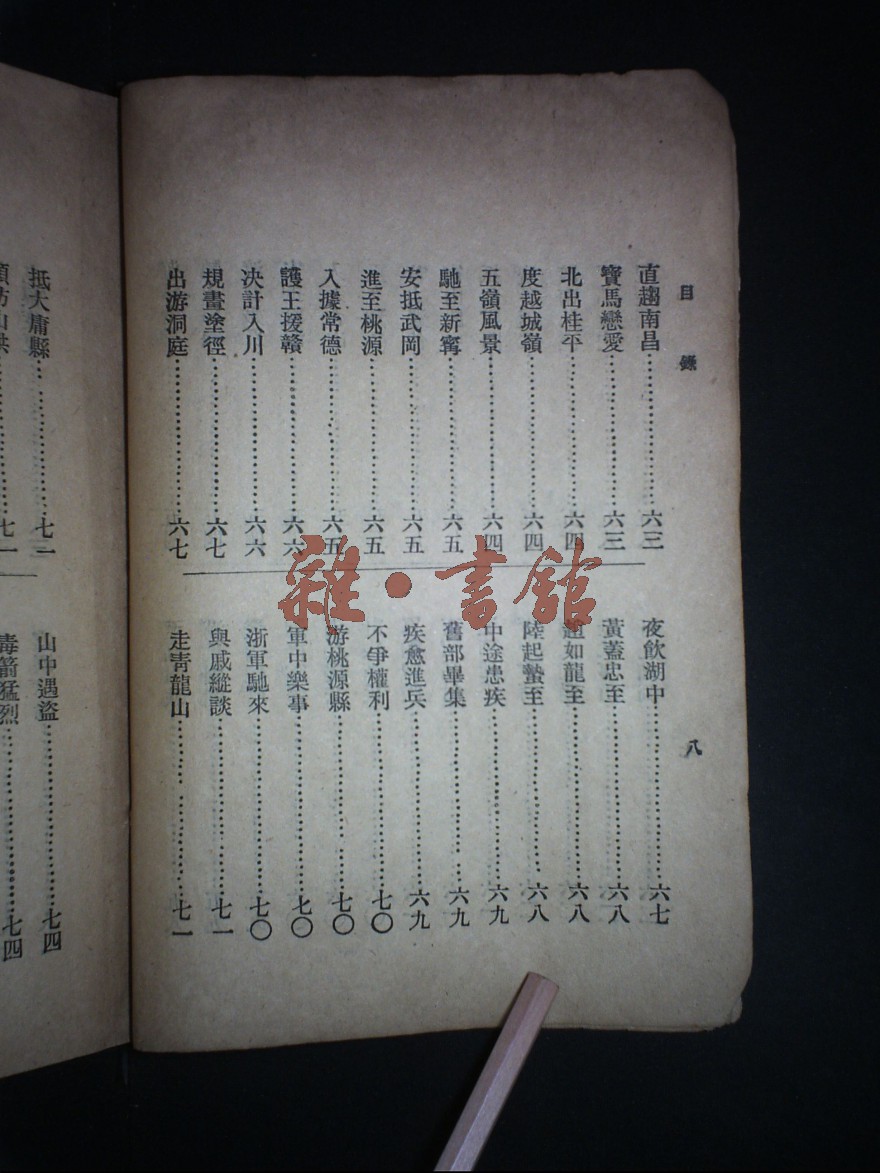 目錄
八
直趨南昌……六三
寶馬戀愛……六三
北出桂平……六四
度越城嶺……六四
五嶺風景……六四
馳至新寗……六五
安抵武岡……六五
進至桃源……六五
入據常德……六五
護王援贛……六六
决計入川……六六
規畫塗徑……六七
出游洞庭……六七
夜飲湖中……六七
黃蓋忠至……六八
如龍至……六八
陸起蟄至……六八
中途患疾……六九
舊部畢集……六九
疾愈進兵……六九
不爭權利……七〇
游桃源縣……七〇
軍中樂事……七〇
浙軍馳來……七〇
與戚縱談……七一
走靑龍山……七一
抵大庸縣……七二
山中遇盜……七四
毒箭猛烈……七四
雜·書館